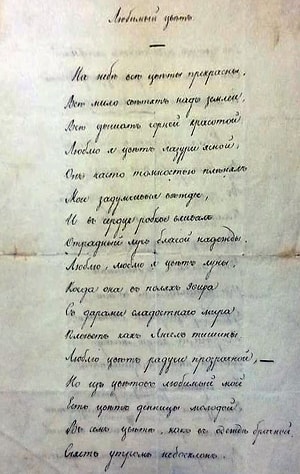 Любимый цвѣтъ.
На небѣ всѣ цвѣты прекрасны,
Всѣ мило свѣтятъ надъ землей,
Всѣ дышатъ горней красотой.
Люблю я цвѣтъ лазури ясной;
Онъ часто томностью плѣнялъ
Мои задумчивыя вѣжды,
И въ сердце робкое вливалъ
Отрадный лучь благой надежды.
Люблю, люблю я цвѣтъ луны,
Когда она въ поляхъ эѳира
Съ дарами сладостнаго мира
Плыветъ какъ Ангелъ тишины.
Люблю цвѣтъ радуги прозрачной, —
Но изъ цвѣтовъ любимый мой
Есть цвѣтъ денницы молодой:
Въ семъ цвѣтѣ, какъ въ одеждѣ брачной
Сіяетъ утромъ небосклонъ